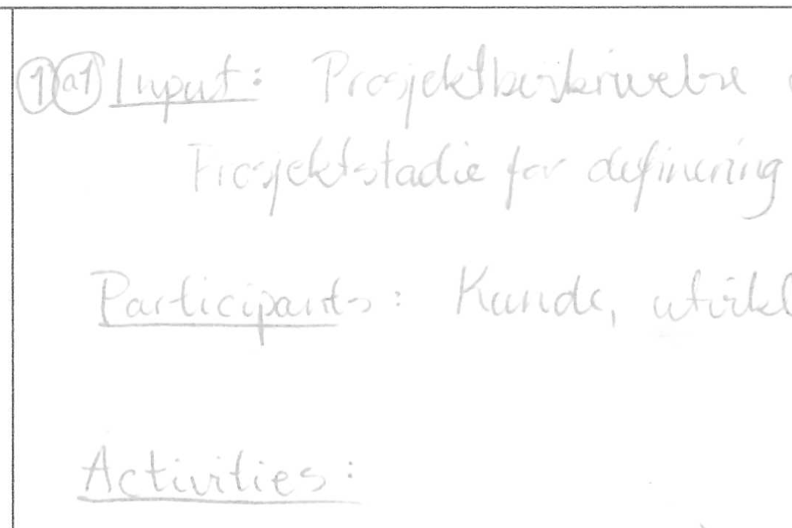 ① a1 Input: Prosjektbeskrivelse
Prosjektstadie for definering
Participants: Kunde, utvikl
Activities: